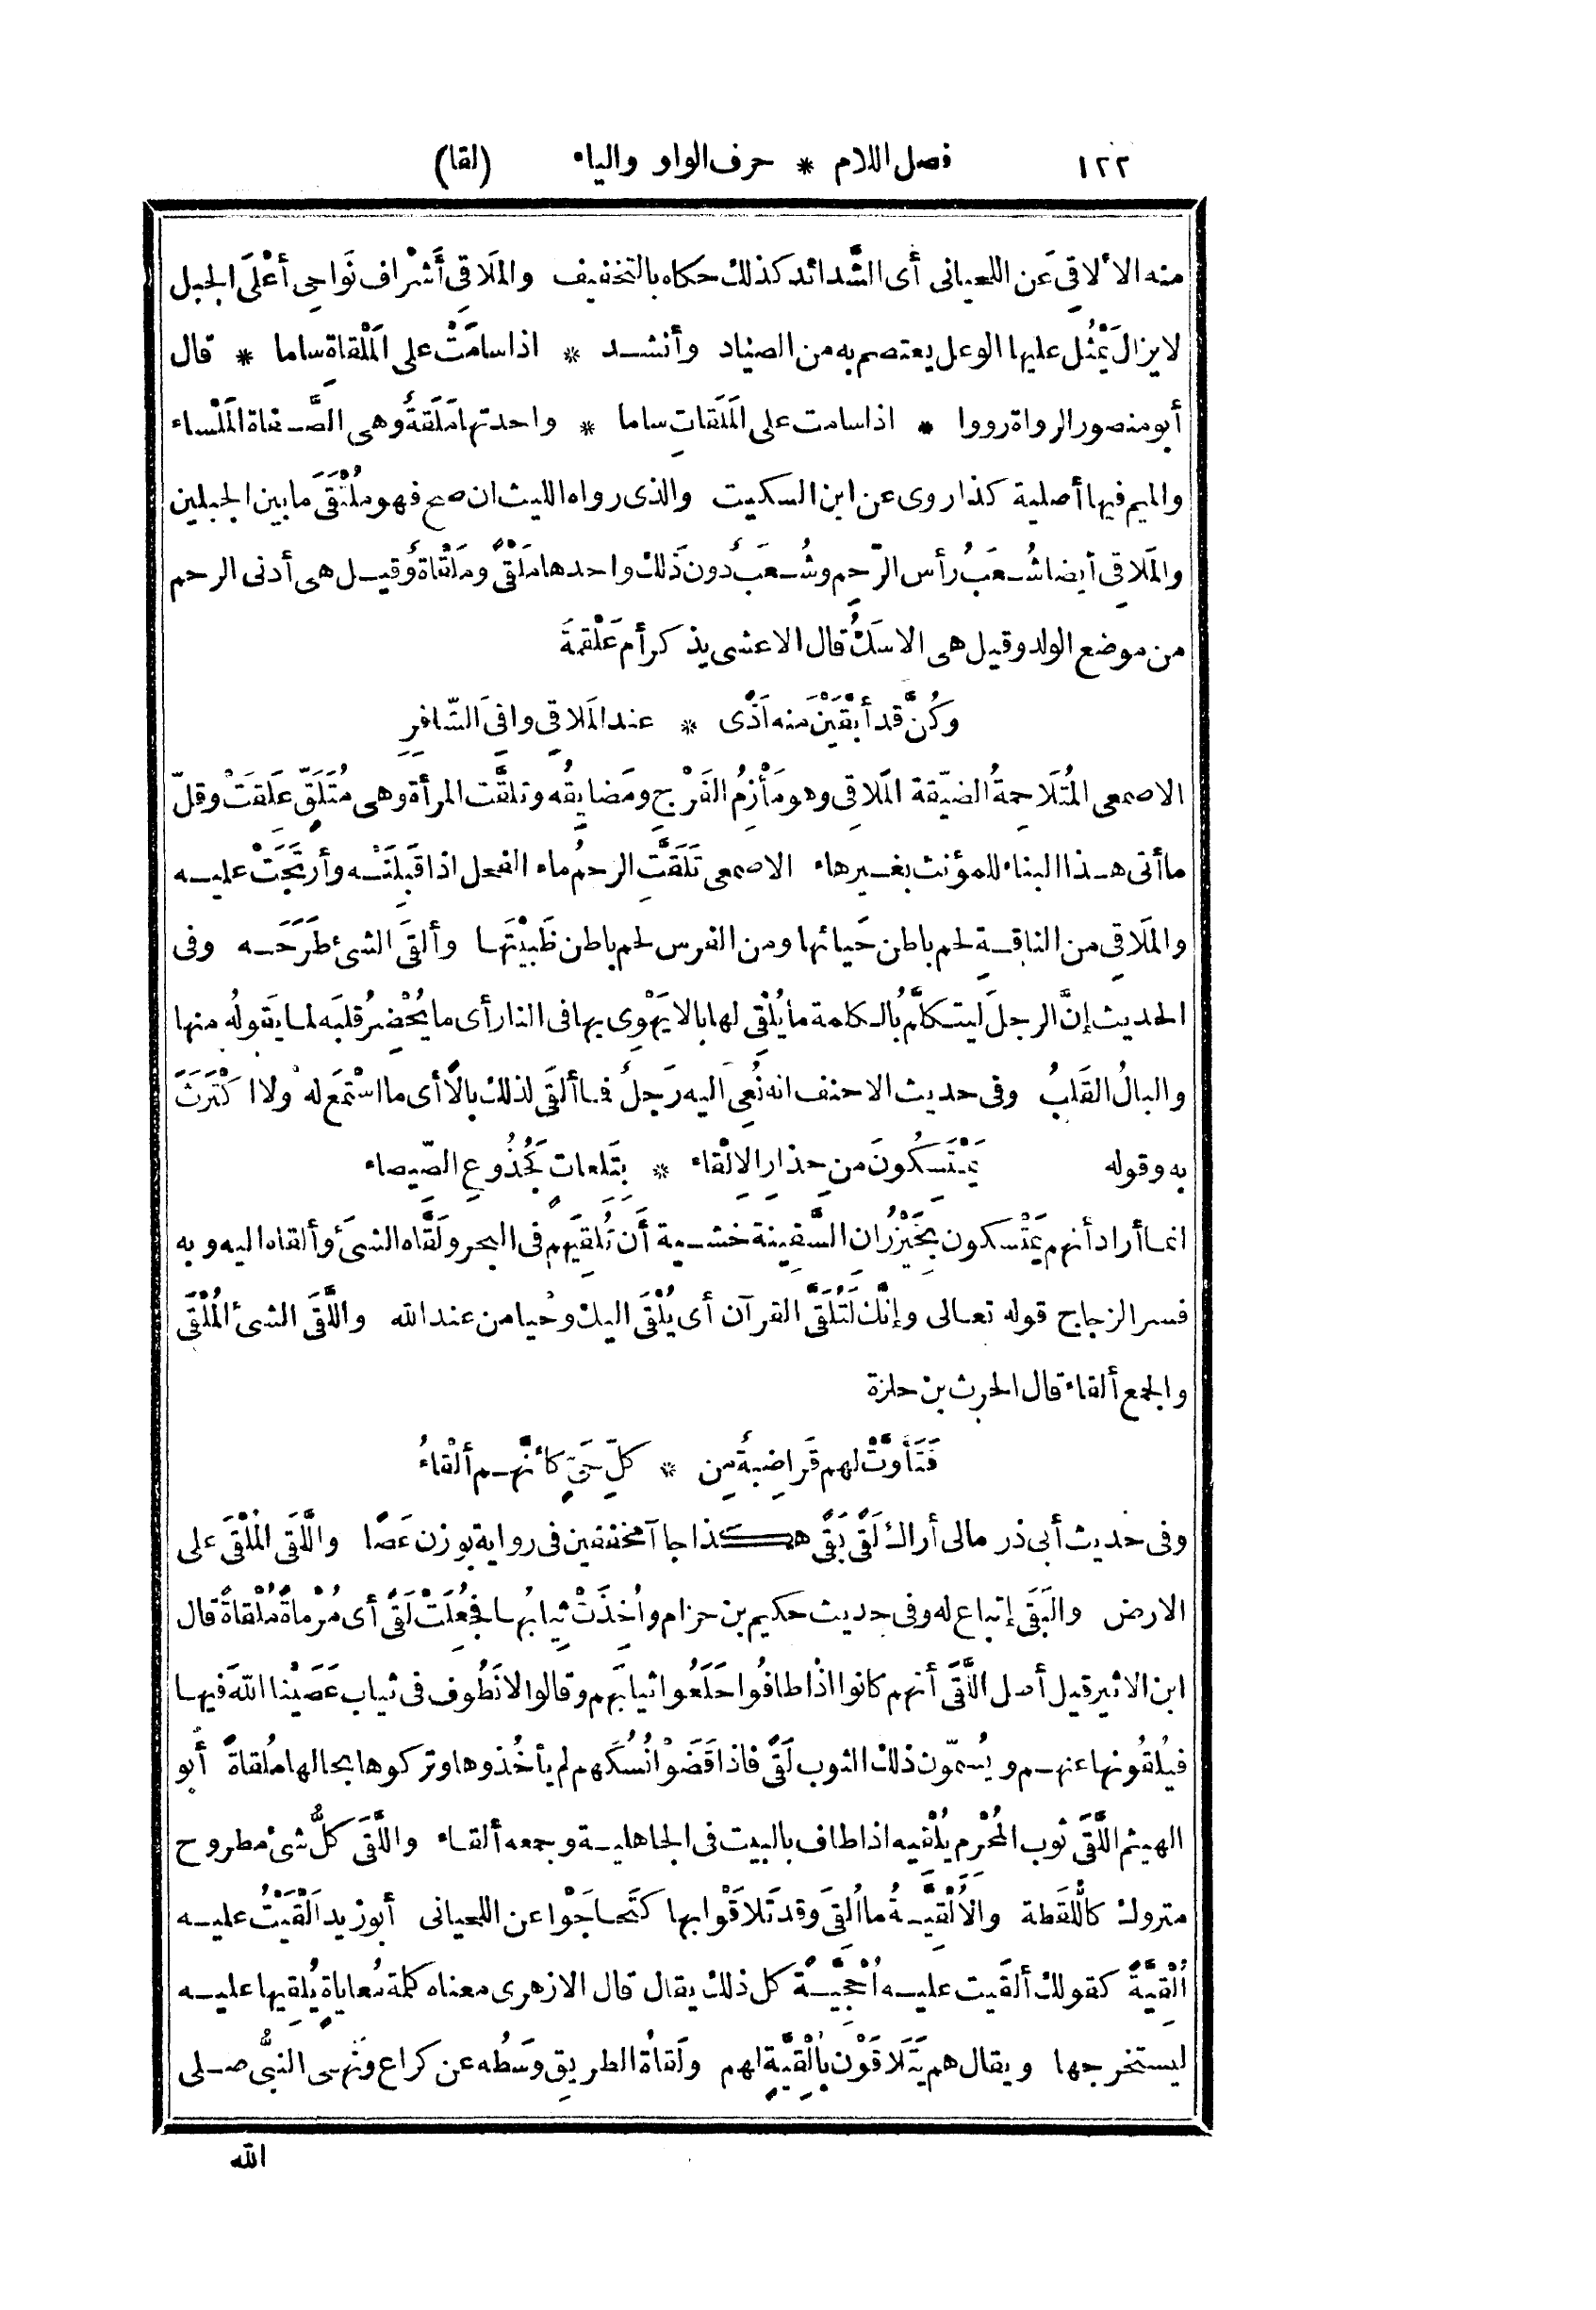 ١٢٢ فصل اللام * حرف الواو والياء (لقا)
منه الألاقِيَ عن اللحيانى أى الشَّدائد كذلك حكاه بالتخفيف والمَلاقِى أَشْراف نَواحِى أعْلَى الجبل
لايزال يَمْثُل عليها الوعل يعتصم به من الصياد وأنشد * اذا سامَتْ على المَلْقاةِ ساما * قال
أبو منصور الرواة رووا * اذا سامت على المَلَقاتِ ساما * واحدتها مَلَقةٌ وهى الصَّفاة المَلْساء
والميم فيها أصلية كذا روى عن ابن السكيت والذى رواه الليث ان صح فهو مُلْتَقَى ما بين الجبلين
والمَلاقِى أيضا شُعَبُ رأس الرَّحِم وشُعَبٌ دون ذَلك واحدها مَلْقًى ومَلْقاةٌ وقيل هى أدنى الرحم
من موضع الولد وقيل هى الاسَكُ قال الاعشى يذكر أم عَلْقمةَ
وكُنَّ قد أبْقَيْنَ منه أذًى * عند المَلاقِى وافِىَ الشّافِرِ
الاصمعى المُتَلاحِمةُ الضيّقة المَلاقِى وهو مَأْزِمُ الفَرْجِ ومَضايِقُه وتلقَّت المرأة وهى مُتَلَقٍّ عَلِقَتْ وقلّ
ما أتى هذا البناء للمؤنث بغير هاء الاصمعى تَلَقَّتِ الرحمُ ماء الفحل اذا قَبِلَتْه وأرتَجَتْ عليه
والمَلاقِى من الناقةِ لحم باطن حَيائها ومن الفرس لحم باطن ظَبْيَتها وألقَى الشئ طَرَحَه وفى
الحديث إنَّ الرجلَ ليتكلَّمُ بالكلمة ما يُلْقِى لها بالا يَهْوِى بها فى النار أى ما يُحْضِرُ قلبَه لما يقولُه منها
والبالُ القَلبُ وفى حديث الاحنف انه نُعِىَ اليه رَجلٌ فما ألقَى لذلك بالًا أى ما اسْتَمَع له ولا اكْتَرَثَ
به وقوله يَمْتَسِكُونَ من حِذارِ الإلْقاء * بتَلِعاتٍ كَجُذُوعِ الصّيصاء
انما أراد أنهم يَمْتَسكون بخَيْزُرانِ السَّفِينة خشية أَن تُلقِيَهم فى البحر ولَقَّاه الشىءَ وألقاه اليه وبه
فسر الزجاج قوله تعالى وإنَّك لَتُلَقَّى القرآن أى يُلْقَى اليك وحْيا من عند الله واللَّقَى الشئ المُلْقَى
والجمع ألقاء قال الحرث بن حلزة
فَتَأَوَّتْ لهم قَراضِبةٌ مِن * كلِّ حَىٍّ كأنَّهم ألْقاءُ
وفى حديث أبى ذر مالى أراك لَقًى بَقًى هكذا جاآ مخففين فى رواية بوزن عَصًا واللَّقَى المُلْقَى على
الارض والبَقَى إتباع له وفى حديث حكيم بن حزام وأُخِذَتْ ثِيابُها فجُعِلَتْ لَقًى أى مُرْماةً مُلْقاةً قال
ابن الاثير قيل أصل اللَّقَى أنهم كانوا اذا طافُوا خَلَعُوا ثيابَهم وقالوا لا نَطُوف فى ثياب عَصَيْنا اللهَ فيها
فيُلقُونها عنهم ويُسمّون ذلك الثوب لَقًى فاذا قَضَوْا نُسُكَهم لم يأخُذوها وتركوها بحالها مُلقاةً أبو
الهيثم اللَّقَى ثوب المُحْرِم يُلْقيه اذا طاف بالبيت فى الجاهلية وجمعه ألقاء واللَّقَى كلُّ شئ مطروح
متروك كاللُّقَطة والأُلْقِيَّةُ ما أُلقِىَ وقد تَلاقَوْا بها كَتَحاجَوْا عن اللحيانى أبو زيد ألْقَيْتُ عليه
أُلْقِيَّةً كقولك ألقَيت عليه أُحْجِيَّةً كل ذلك يقال قال الازهرى معناه كلمة مُعاياةٍ يُلقِيها عليه
ليستخرجها ويقال هم يَتَلاقَوْن بأُلْقِيَّةٍ لهم ولَقاةُ الطريقِ وسَطُه عن كراع ونَهى النبىُّ صلى
الله